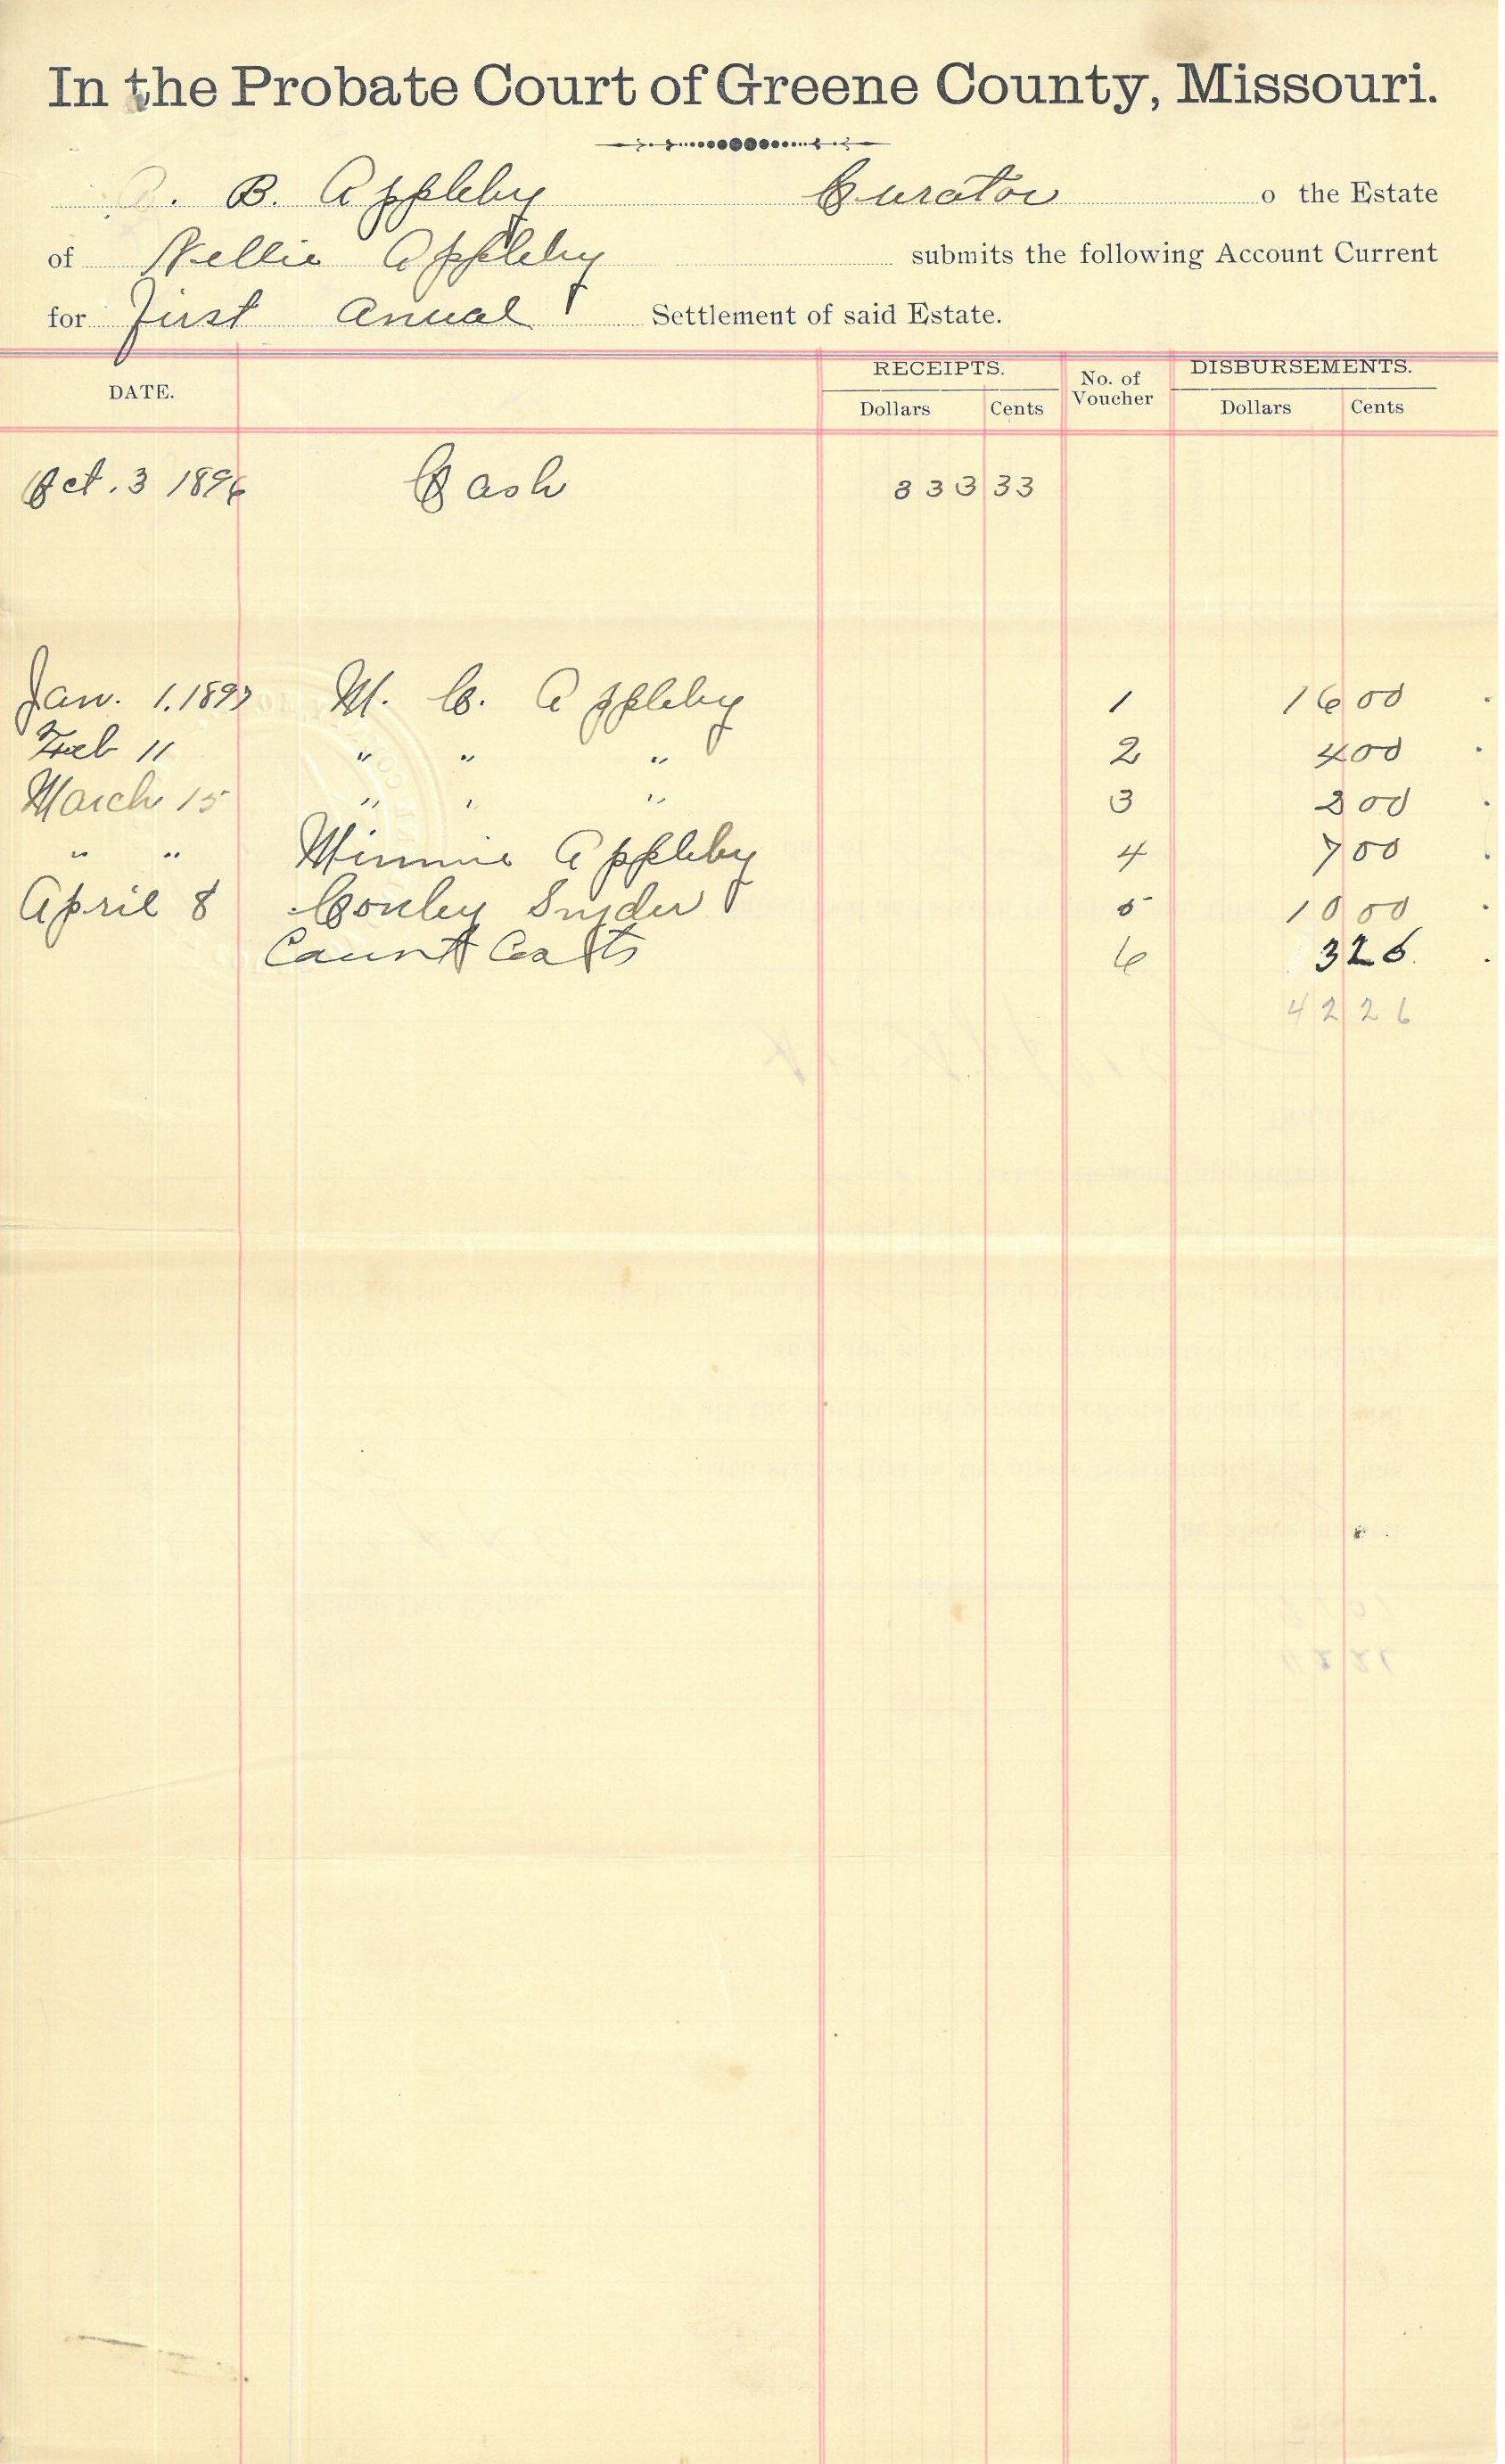 In the Probate Court of Greene County, Missouri.
A. B. Appleby Curator o the Estate
of Nellie Appleby submits the following Account Current
for First Anual Settlement of said Estate.
DATE. RECEIPTS. No. of Voucher DISBURSEMENTS.
Dollars Cents Dollars Cents
Oct. 3 1896 Cash 833 33
Jan. 1. 1897 M. C. Appleby 1 16 00
Feb 11 " " " 2 4 00
March 15 " " " 3 2 00
" " Minnie Appleby 4 7 00
April 8 Conley Snyder 5 10 00
Court Costs 6 3 26
42 26